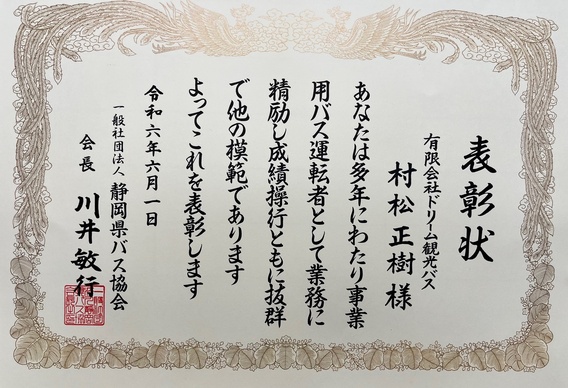 表彰状
有限会社ドリーム観光バス
村松正樹様
あなたは多年にわたり事業
用バス運転者として業務に
精励し成績操行ともに抜群
で他の模範であります
よってこれを表彰します
令和六年六月一日
一般社団法人 静岡県バス協会
会長 川井敏行